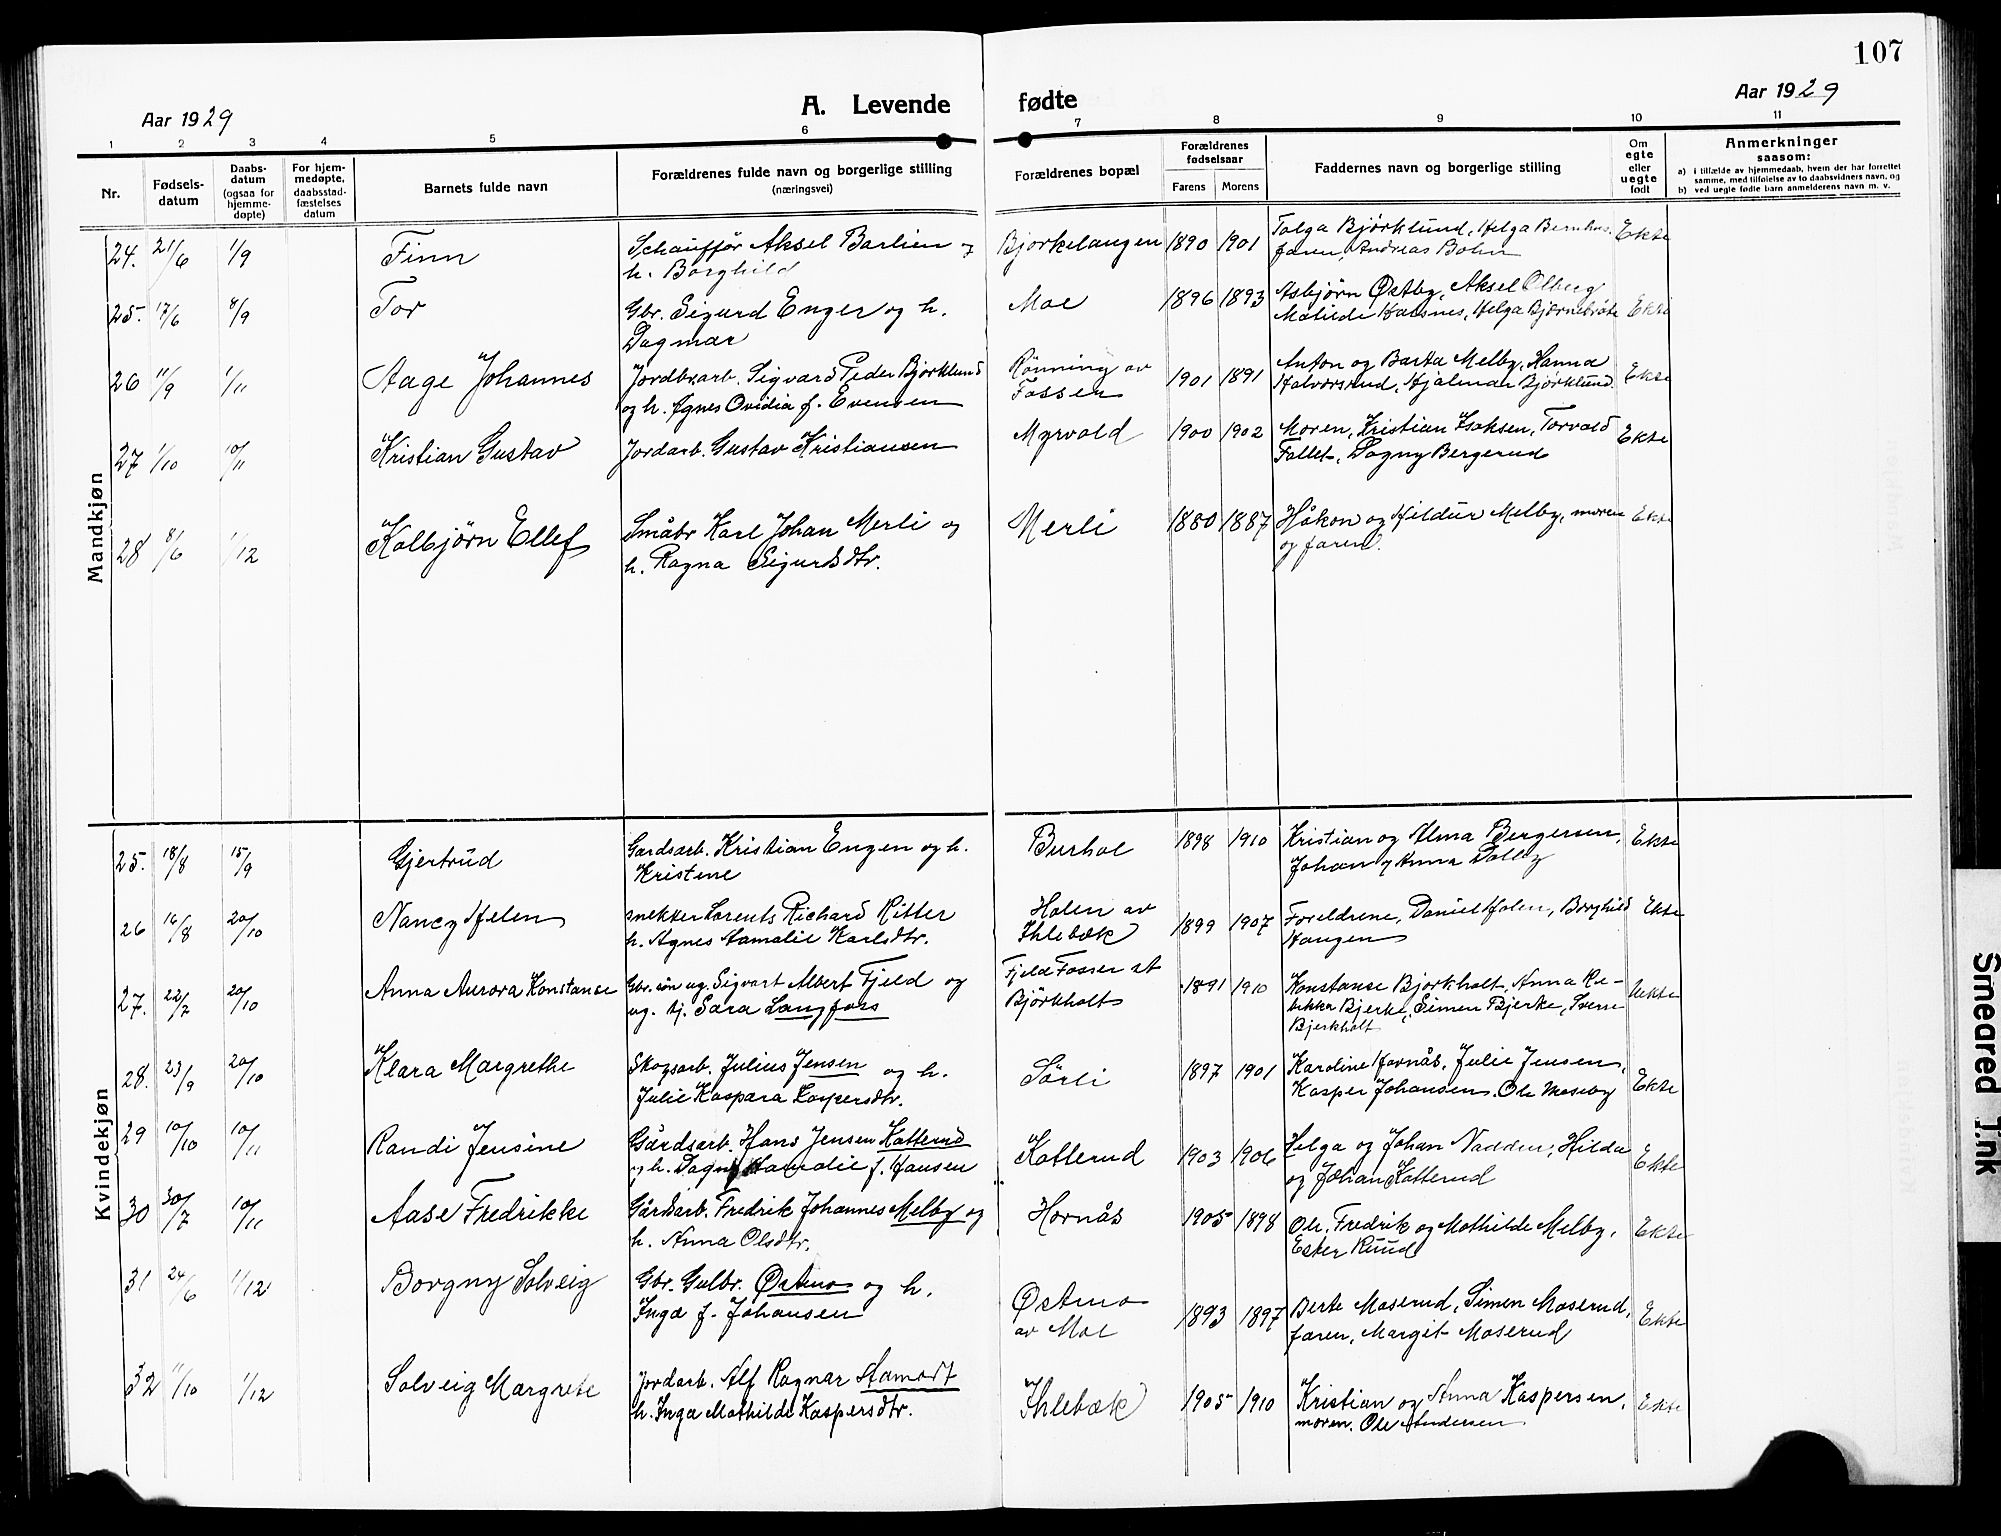 107
Aar 1929
A. Levende fødte
Aar 1929
1 2 3 4 5 6 7 8 9 10 11
Nr.
Fødsels-
datum
Daabs-
datum
(ogsaa for
hjemme-
døpte)
For hjem-
medøpte,
daabsstad-
fæstelses
datum
Barnets fulde navn
Forældrenes fulde navn og borgerlige stilling
(næringsvei)
Forældrenes bopæl
Forældrenes
fødselsaar
Farens Morens
Faddernes navn og borgerlige stilling
Om
egte
eller
uegte
født
Anmerkninger
saasom:
a) i tilfælde av hjemmedaab, hvem der har forrettet
samme, med tilføielse av to daabsvidners navn, og
b) ved uegte fødte barn anmelderens navn m. v.
Mandkjøn
24. 21/6 1/9 Finn Schauffør Aksel Barlien og
h. Borghild
Bjørkelangen 1890 1901 Tolga Bjørklund, Helga
faren, Andreas Bohn
Ekte
25. 17/6 8/9 Tor Gbr. Sigurd Enger og h.
Dagmar
Moe 1896 1893 Asbjørn Østby, Aksel Olberg
Matilde Kaasnes, Helga Bjørnebråte
Ekte
26 11/9 1/11 Aage Johannes Jordbrarb. Sigvard Peder Bjørklund
og h. Agnes Ovidia f. Evensen
Rønning av
Fosser
1901 1891 Anton og Barta Melby, Hanna
Halvorsrud, Hjalmar Bjørklund.
Ekte
27 1/10 10/11 Kristian Gustav Jordarb. Gustav Kristiansen
Myrvold 1900 1902 Moren, Kristian Isaksen, Torvald
Follet, Dagny Bergerud
Ekte
28 8/6 1/12 Kolbjørn Ellef Småbr Karl Johan Merli og
h. Ragna Sigurdsdtr.
Merli 1880 1887 Håkon og Hildur Melby, moren
og faren.
Ekte
Kvindekjøn
25. 18/8 15/9 Gjertrud Gardsarb. Kristian Engen og h.
Kristine
Burhol 1898 1910 Kristian og Alma Bergersen,
Johan og Anna Dalby
Ekte
26 16/8 20/10 Nancy Helen snekker Lorents Richard Ritter
h. Agnes Aamalie Karlsdtr.
Holen av
Ihlebæk
1899 1907 Foreldrene, Daniel Holen, Borghild
Haugen
Ekte
27. 22/7 20/10 Anna Aurora Konstanse Gbr. søn ug. Sigvart Albert Fjeld og
ug. tj. Sara Langfoss
Fjeld Fosser et
Bjørkholt
1891 1910 Konstanse Bjørkholt, Anna Re-
bekka Bjerke, Simen Bjerke, Sverre
Bjerkholt
Uekte
28. 23/9 20/10 Klara Margrethe Skogsarb. Julius Jensen og h.
Julie Kaspara Kaspersdtr.
Sørli 1897 1901 Karoline Hornås, Julie Jensen,
Kasper Johansen. Ole Moseby
Ekte
29 10/10 10/11 Randi Jensine Gårdsarb. Hans Jensen Katterud
og h. Dagny Aamalie f. Hansen
Katterud 1903 1906 Helga og Johan Nadden, Hilda
og Johan Katterud
Ekte
30 30/7 10/11 Aase Fredrikke Gårdsarb. Fredrik Johannes Melby og
h. Anna Olsdtr.
Hornås 1905 1898 Ole, Fredrik og Mathilde Melby,
Ester Ruud
Ekte
31 24/6 1/12 Borgny Solveig Gbr. Gulbr. Østmo og h.
Inga f. Johansen
Østmo
av Moe
1893 1897 Berte Moserud, Simen Moserud,
faren, Margit Moserud
Ekte
32 11/10 1/12 Solveig Margrete Jordarb. Alf Ragnar Aamodt
h. Inga Mathilde Kaspersdtr.
Ihlebæk 1905 1910 Kristian og Anna Kaspersen,
moren, Ole Andersen
Ekte
Smeared Ink